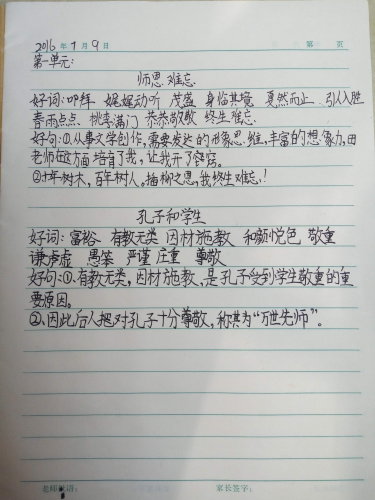 2016年7月9日 第 页
第一单元:
师恩难忘
好词:叩拜 娓娓动听 茂盛 身临其境 戛然而止 引人入胜
春雨点点 桃李满门 恭恭敬敬 终生难忘
好句:①、从事文学创作,需要发达的形象思维,丰富的想象力,田
老师在这方面培育了我,让我开了窍。
②十年树木,百年树人,插柳之恩,我终生难忘!
孔子和学生
好词:富裕 有教无类 因材施教 和颜悦色 敬重
谦虚 愚笨 严谨 庄重 尊敬
好句:①、有教无类,因材施教,是孔子受到学生敬重的重
要原因。
②、因此后人把对孔子十分尊敬,称其为“万世先师”。
老师 语: 家长签字: